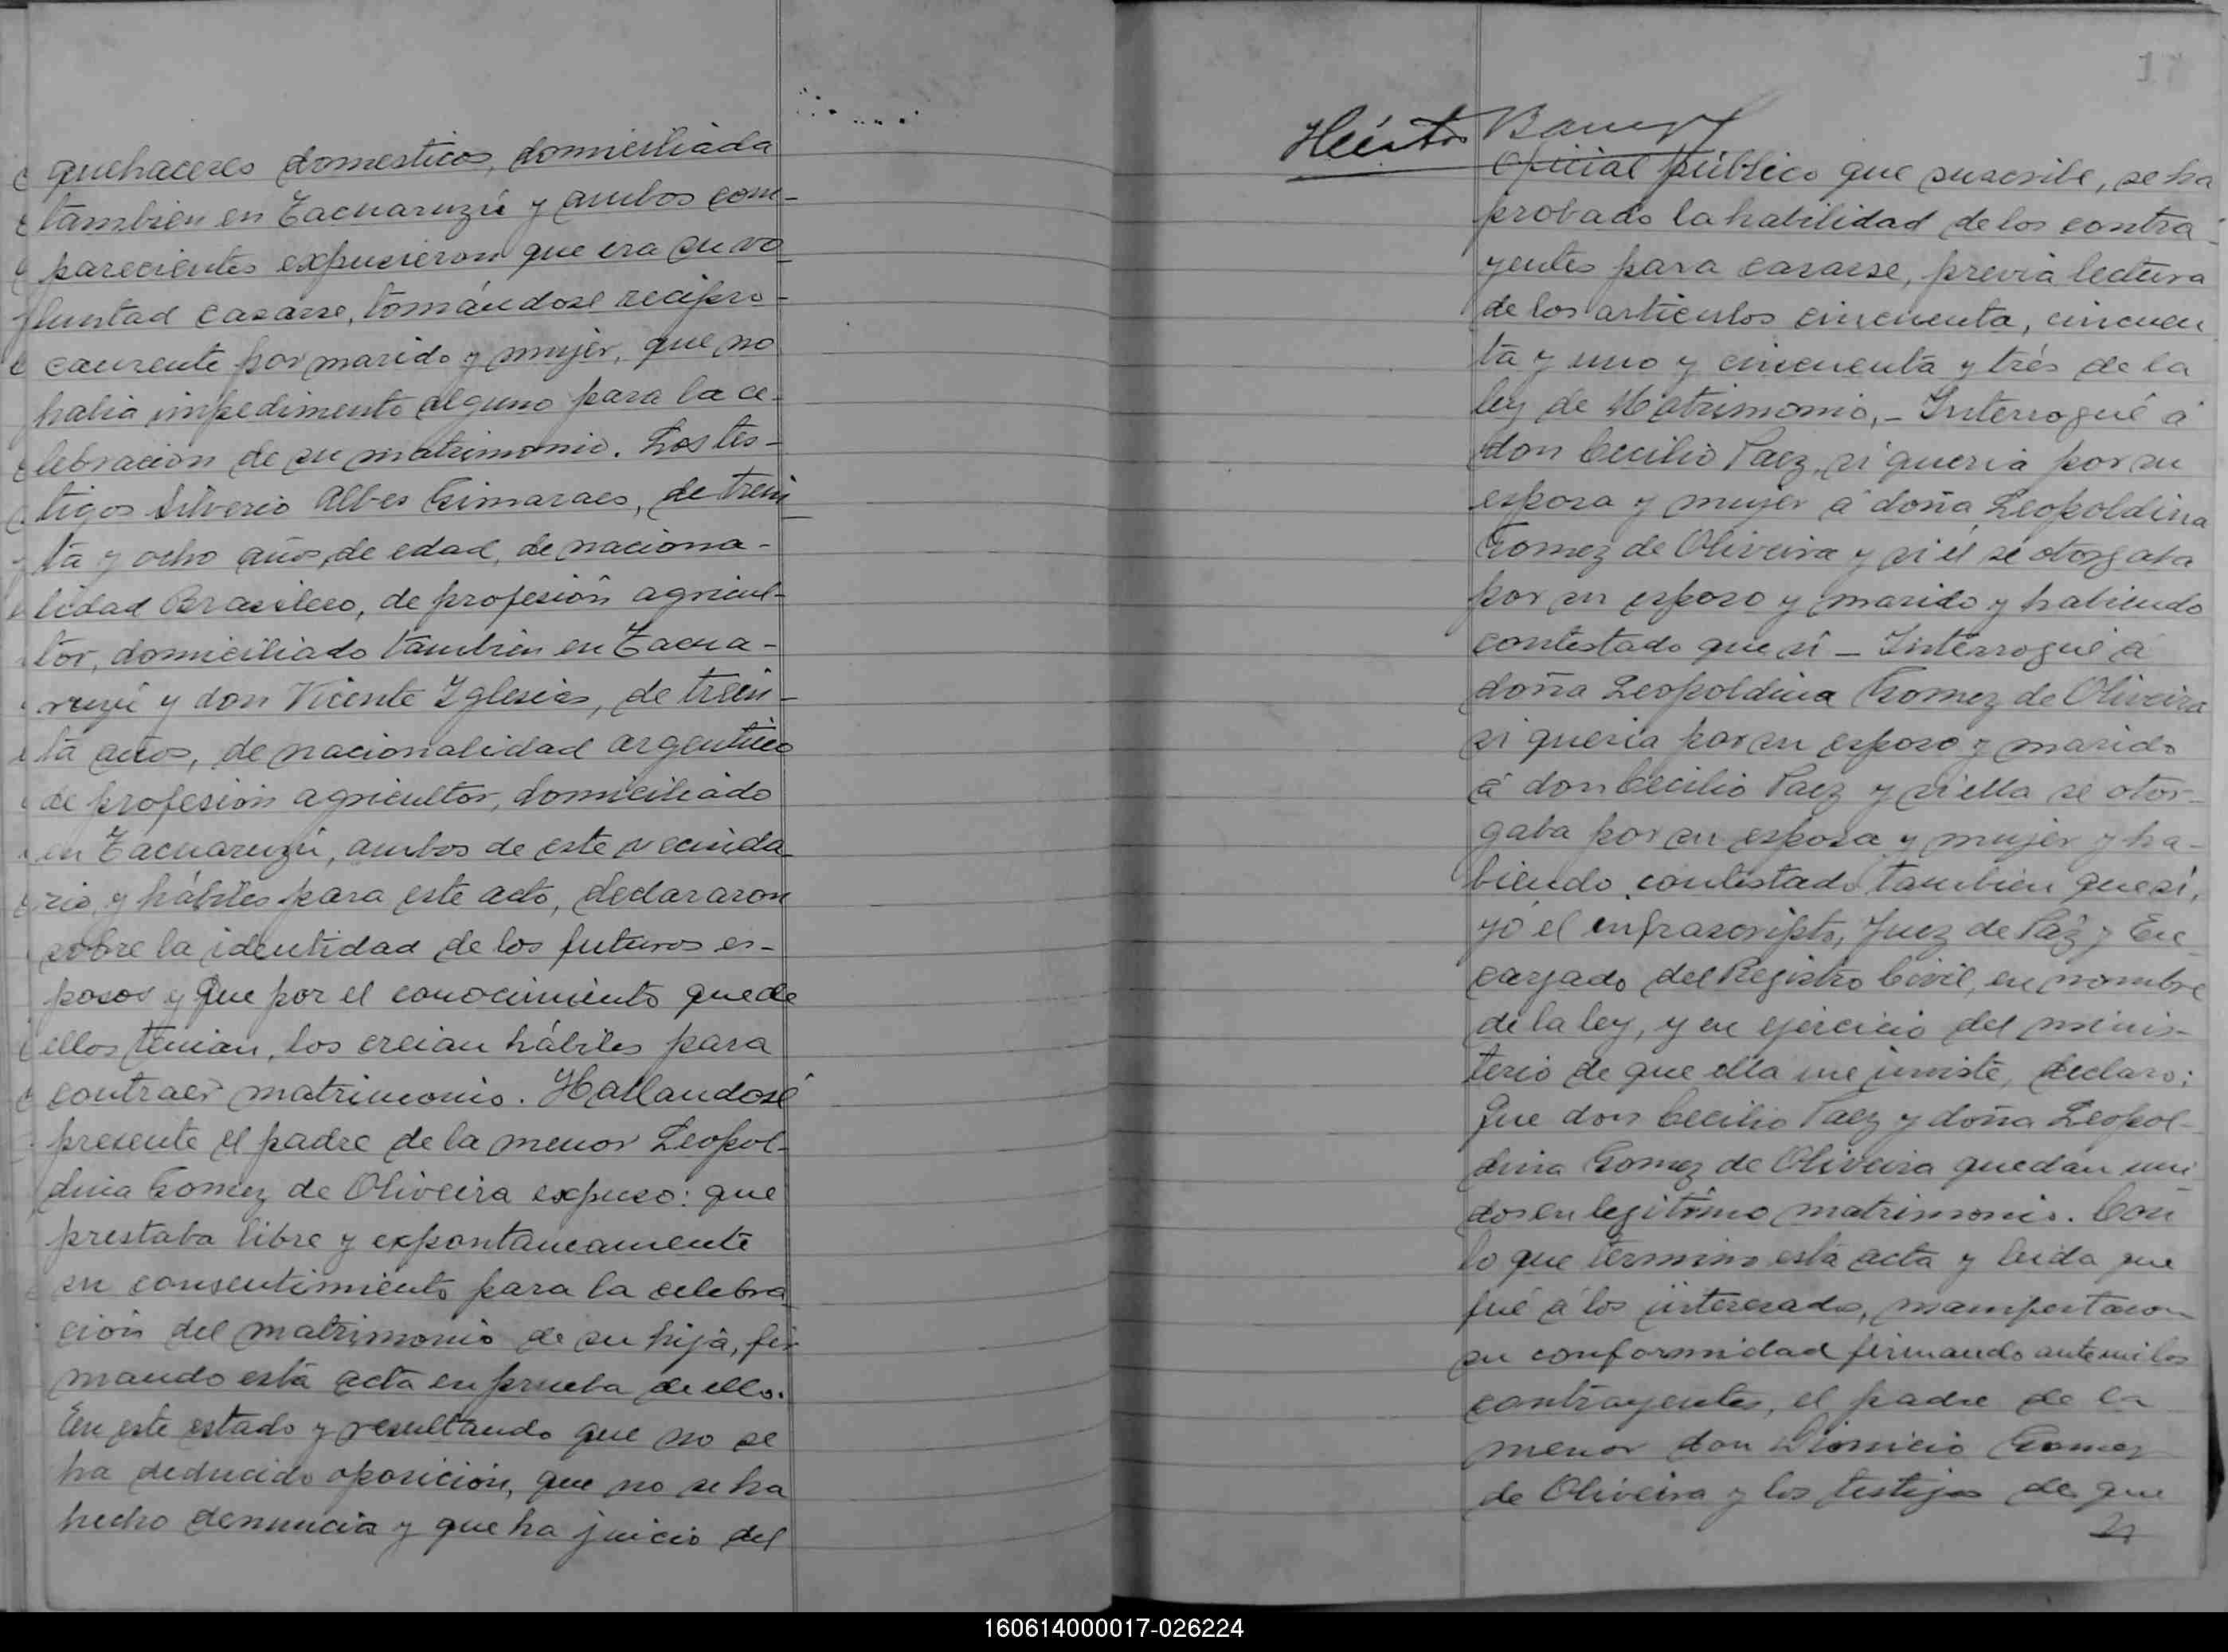 quehaceres domesticos, domiciliada
tambien en Tacuaruzú y ambos com-
parecientes expucieron que era su vo
luntad casarse, tomándose recipro-
camente por marido y mujer, que no
habia impedimento alguno para la ce-
lebración de su matrimonio. Los tes-
tigos Silverio Albes Gimaraes, de trein
ta y ocho años, de edad, de naciona-
lidad Brasilero, de profesión agricul-
tor, domiciliado tambien en Tacua-
ruzú y don Vicente Yglesias, de trein-
ta años, de nacionalidad argentino
de profesión agricultor, domiciliado
en Tacuaruzú, ambos de este vecinda
rio, y hábiles para este acto, declararon
sobre la identidad de los futuros es-
posos y que por el conocimiento que de
ellos tenian, los creian hábiles para
contraer matrimonio. Hallandosé
presente el padre de la menor Leopol-
dina Gomez de Oliveira expuso: que
prestaba libre y expontaneamente
su consentimiento para la celebra
ción del matrimonio de su hija, fir
mando está acta en prueba de ello.
En este estado y resultando que no se
ha deducido oposición, que no se ha
hecho denuncia y que ha juicio del
17
Héctor
Oficial público que suscribe, se ha
probado la habilidad de los contra-
yentes para casarse, previa lectura
de los articulos cincuenta, cincuen
ta y uno y cincuenta y trés de la
ley de Matrimonio,- Interrogué á
don Cecilio Paez, si queria por su
esposa y mujer á doña Leopoldina
Gomez de Oliveira y si él se otorgaba
por su esposo y marido y habiendo
contestado que sí - Interrogué á
doña Leopoldina Gomez de Oliveira
si queria por su esposo y marido
á don Cecilio Paez y si ella se otor-
gaba por su esposa y mujer y ha-
biendo contestado tambien que sí,
yó el infrascripto, Juez de Páz y En
cargado del Registro Civil, en nombre
de la ley, y en ejercicio del minis-
terio de que ella me inviste, declaro:
Que don Cecilio Paez y doña Leopol-
dina Gomez de Oliveira quedan uni
dos en legitimo matrimonio. Con
lo que termino está acta y leida que
fué á los interesados, manifestaron
su conformidad firmando ante mi los
contrayentes, el padre de la
menor don Dionicio Gomez
de Oliveira y los testigos de que
160614000017-026224